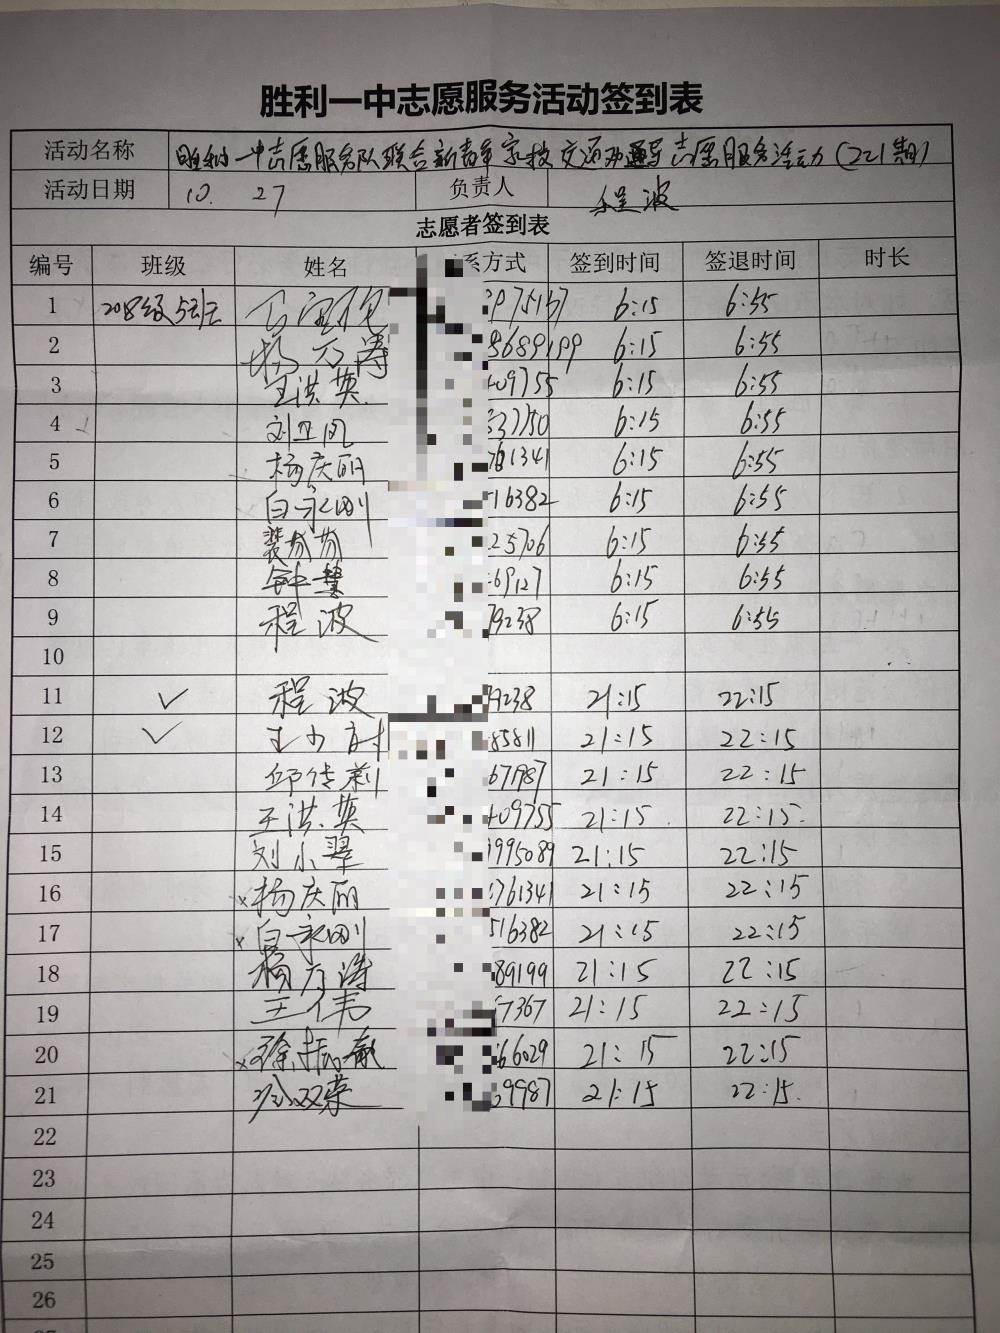 胜利一中志愿服务活动签到表
活动名称 胜利一中志愿服务队联合新春草家校交通劝导志愿服务活动(221期)
活动日期 10. 27 负责人 程波
志愿者签到表
编号 班级 姓名 系方式 签到时间 签退时间 时长
1 208级5班 6:15 6:55
2 杨方涛 5689199 6:15 6:55
3 王洪英 09755 6:15 6:55
4 刘卫凤 37150 6:15 6:55
5 杨庆丽 761341 6:15 6:55
6 白永刚 16382 6:15 6:55
7 25706 6:15 6:55
8 钟慧 69127 6:15 6:55
9 程波 79238 6:15 6:55
10
11 ✓ 程波 79238 21:15 22:15
12 ✓ 85811 21:15 22:15
13 邱传莉 67987 21:15 22:15
14 王洪英 09755 21:15 22:15
15 刘小翠 995089 21:15 22:15
16 ×杨庆丽 761341 21:15 22:15
17 ×白永刚 516382 21:15 22:15
18 杨方涛 89199 21:15 22:15
19 王伟 7367 21:15 22:15
20 ×徐振敏 66029 21:15 22:15
21 9987 21:15 22:15
22
23
24
25
26